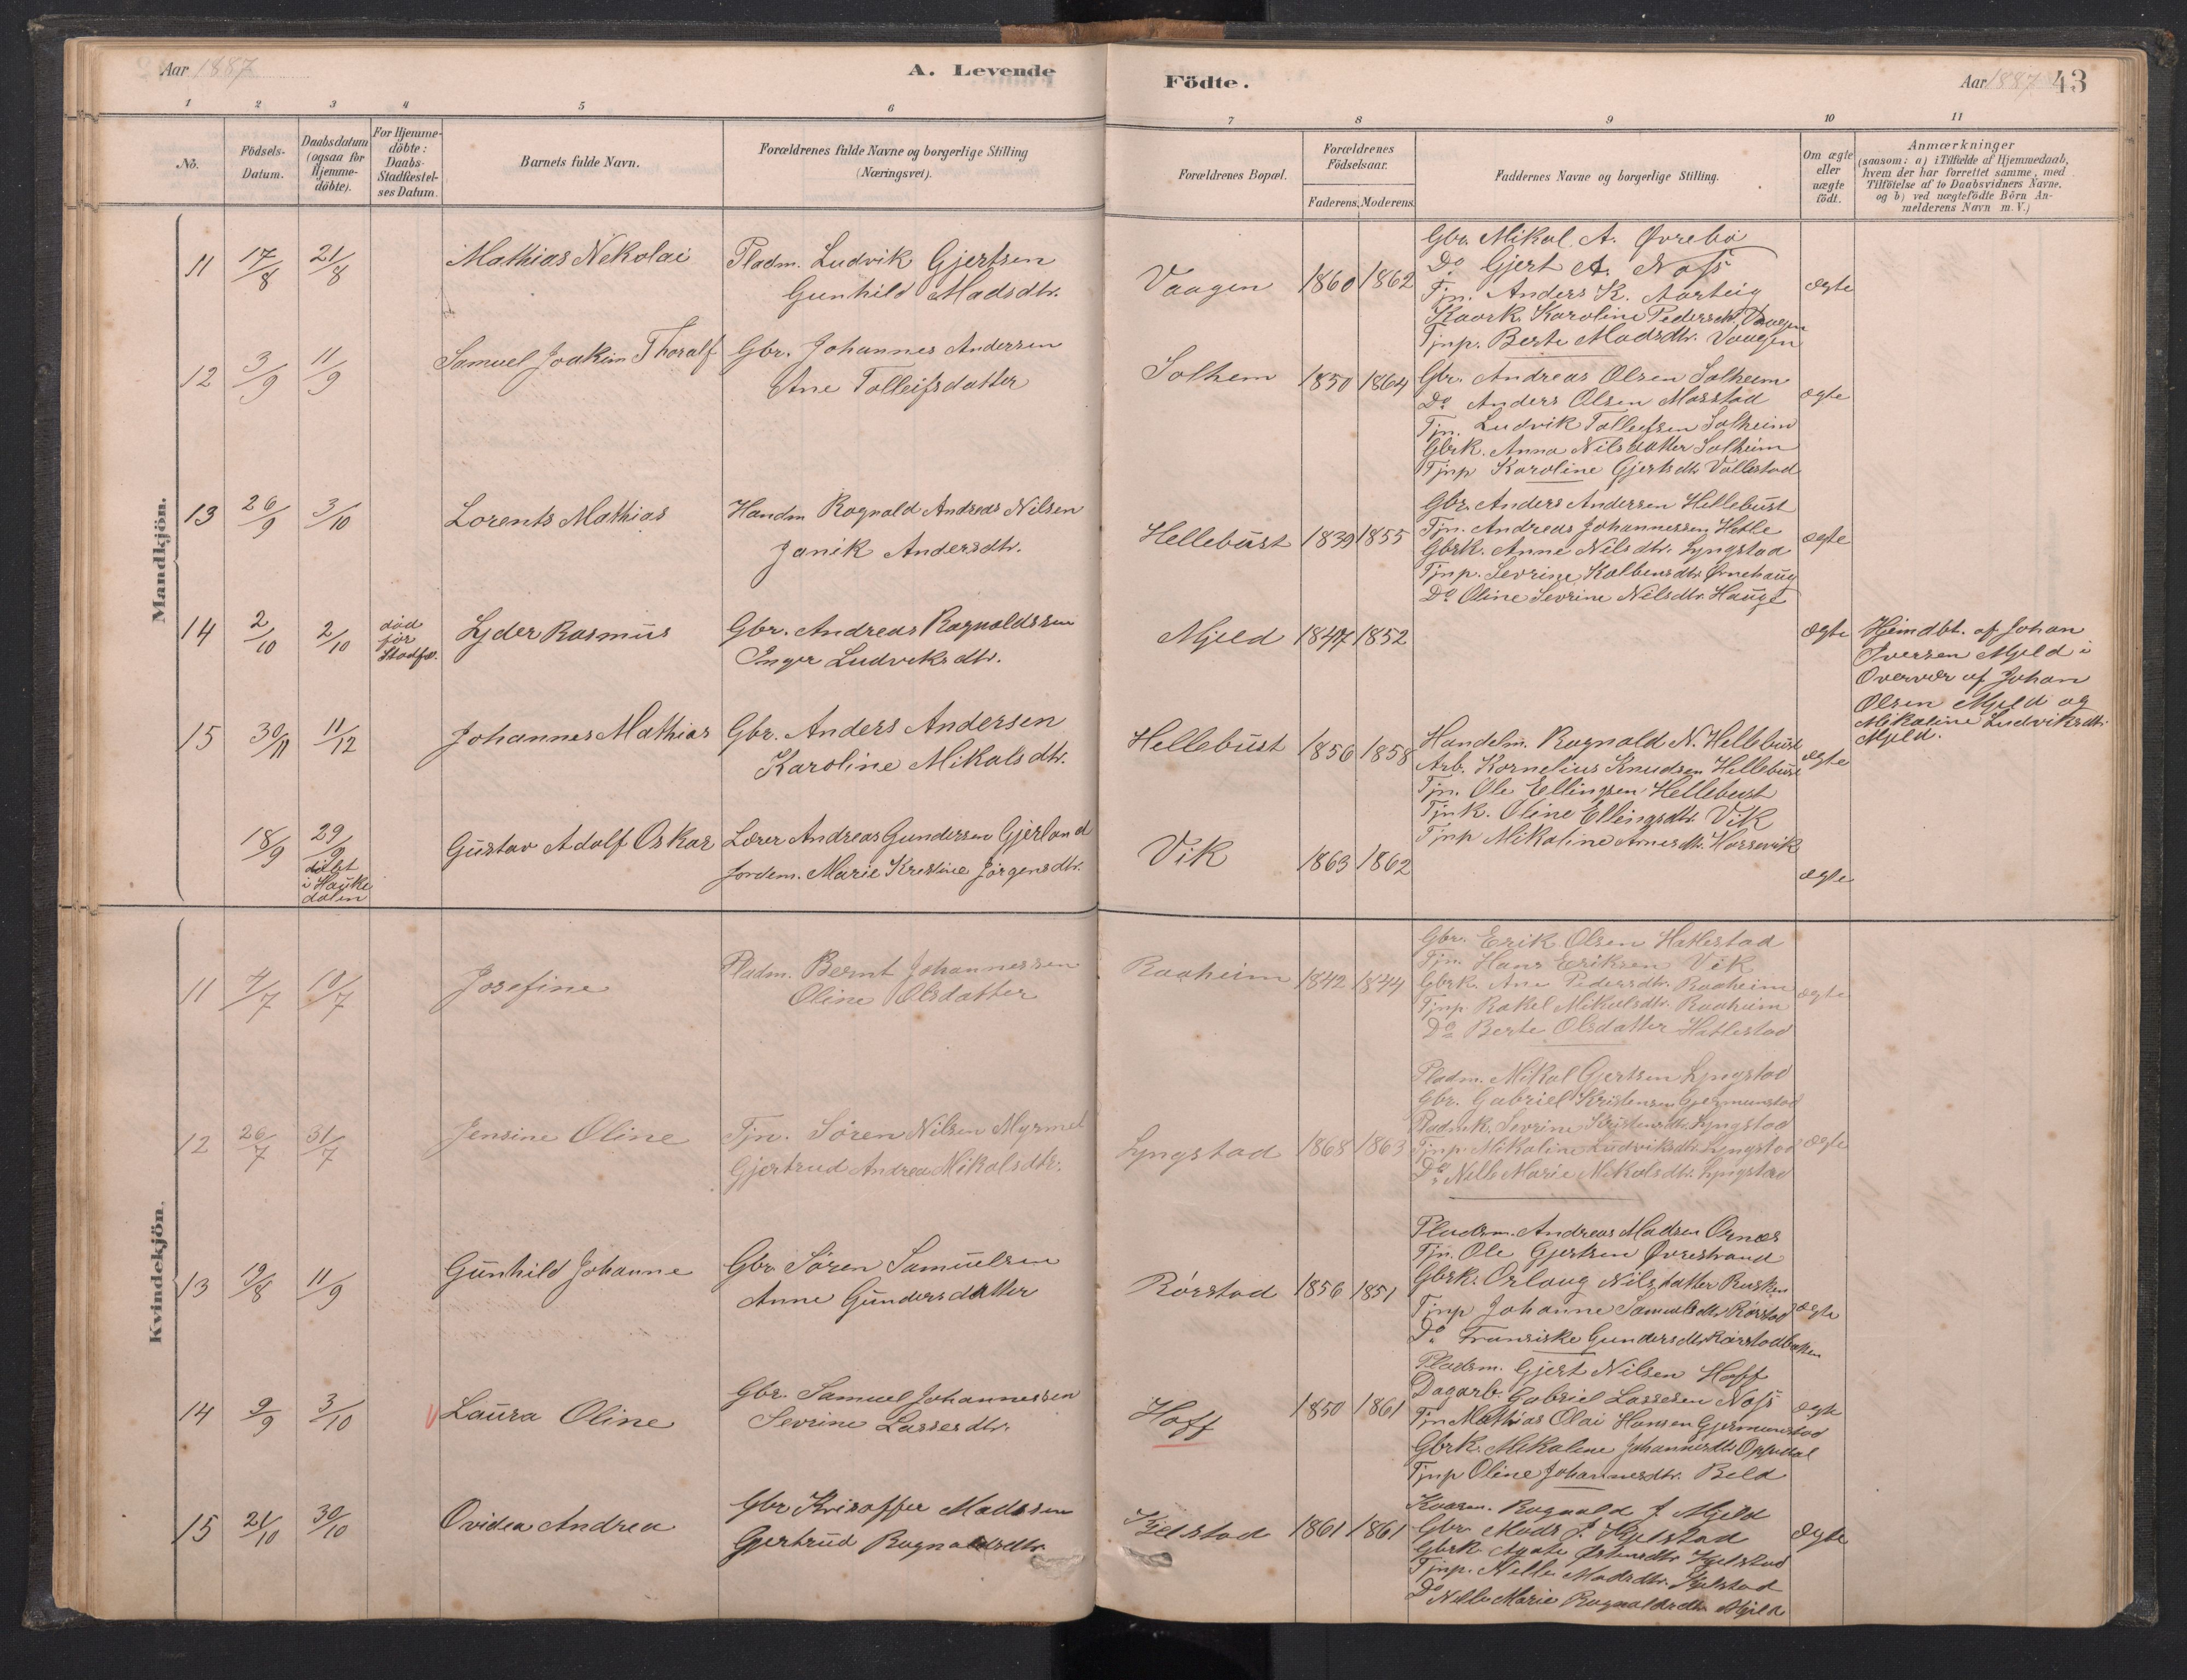 Aar 1887
A. Levende
Födte.
Aar 1887 43
1 2 3 4 5 6 7 8 9 10 11
No.
Födsels-
Datum.
Daabsdatum
(ogsaa for
Hjemme-
döbte).
For Hjemme-
döbte:
Daabs-
Stadfæstel-
ses Datum.
Barnets fulde Navn.
Forældrenes fulde Navne og borgerlige Stilling
(Næringsvei).
Forældrenes Bopæl.
Forældrenes
Födselsaar.
Faderens. Moderens.
Faddernes Navne og borgerlige Stilling.
Om ægte
eller
uægte
født.
Anmærkninger
(saasom: a) i Tilfælde af Hjemmedaab,
hvem der har forrettet samme, med
Tilföielse af to Daabsvidners Navne.
og b) ved uægtefödte Börn An-
melderens Navn m. V.)
Mandkjön.
11 17/8 21/8 Mathias Nikolai
Pladm. Ludvik Gjertsen
Gunhild Madsdtr.
Vaagen 1860 1862
Gbr. Mikal A. Øvrebø
Do Gjert A. Nass
Tjn. Anders K. Aarteig
Kaark. Karoline Pedersdt. Vaagen
Tjnp. Berte Madsdtr. Vaagen
ægte
12 3/9 11/9 Samuel Joakim Thoralf
Gbr. Johannes Andersen
Ane Tolleifsdatter
Solhem 1850 1864
Gbr. Andreas Olsen Solheim
Do Anders Olsen Masstad
Tjn. Ludvik Tolleifsen Solheim
Gbrk. Anna Nilsdatter Solheim
Tjnp Karoline Gjertsdtr Vallestad
ægte
13 26/9 3/10 Lorents Mathias
Handm Ragnald Andreas Nilsen
Janik Andersdtr.
Hellebust 1839 1855
Gbr. Anders Andersen Hellebust
Tjn. Andreas Johannessen Hetle
Gbrk. Anne Nilsdtr. Lyngstad
Tjnp. Sevrine Kolbensdtr Ørnehaug
Do Oline Sevrine Nilsdtr. Hauge
ægte
14 2/10 2/10
død
før
Stadfæ.
Lyder Rasmus
Gbr. Andreas Ragnaldssen
Inger Ludviksdtr.
Mjeld 1847 1852
ægte
Hjemdbt. af Johan
Iversen Mjeld i
Overvær af Johan
Olsen Mjeld og
Mikaline Ludviksdtr.
Mjeld.
15 30/11 11/12 Johannes Mathias
Gbr. Anders Andersen
Karoline Mikalsdtr.
Hellebust 1856 1858
Handelm. Ragnald N. Hellebust
Arb. Kornelius Knudsen Hellebust
Tjn. Ole Ellingsen Hellebust
Tjnk. Oline Ellingsdtr Vik
Tjnp Mikaline Arnesdtr. Horsevik
ægte
18/9 29/9
døbt
i Hauke
dalen
Gustav Adolf Oskar
Lærer Andreas Gundersen Gjerland
Jordem. Marie Kristine Jørgensdtr.
Vik 1863 1862
ægte
Kvindekjön.
11 4/7 10/7 Josefine
Pladm. Bernt Johannessen
Oline Olsdatter
Raaheim 1842 1844
Gbr. Erik Olsen Hatlestad
Tjn. Hans Eriksen Vik
Gbrk. Ane Pedersdtr. Raaheim
Tjnp. Rakel Mikalsdtr. Raaheim
Do Berte Olsdatter Hatlestad
ægte
12 26/7 31/7 Jensine Oline
Tjn. Søren Nilsen Myrmel
Gjertrud Andrea Mikalsdtr.
Lyngstad 1868 1863
Pladm. Mikal Gjertsen Lyngstad
Gbr. Gabriel Kristensen Gjermunstad
Pladmk. Sevrine Kristensdtr. Lyngstad
Tjnp Mikaline Ludviksdtr. Lyngstad
Do Nelle Marie Mikalsdtr. Lyngstad
ægte
13 19/8 11/9 Gunhild Johanne
Gbr Søren Samuelsen
Anne Gundersdatter
Rørstad 1856 1851
Pladsm. Andreas Madsen Osnæs
Tjn. Ole Gjertsen Øvrestrand
Gbrk. Orlaug Nilsdatter Rusken
Tjnp Johanne Samuelsdtr Rørstad
Do Fransiske Gundersdtr Rørstadbakken
ægte
14 9/9 3/10 Laura Oline
Gbr. Samuel Johannessen
Sevrine Lassesdtr.
Hoff 1850 1861
Pladsm. Gjert Nilsen Hoff
Dagarb. Gabriel Lassesen Nass
Tjn Mathias Olai Hansen Gjermunstad
Gbrk. Mikaline Johannesdtr Oppedal
Tjnp Oline Johannesdtr. Beld
ægte
15 21/10 30/10 Ovidea Andrea
Gbr Krisoffer Madssen
Gjertrud Ragnaldsdtr
Kjelstad 1861 1861
Kaarm. Ragnald J. Mjeld
Gbr Mads J. Kjelstad
Gbrk Agate Østensdtr Kjelstad
Tjnp. Nelle Madsdtr. Kjelstad
Do Nelle Marie Ragnaldsdtr Mjeld
ægte